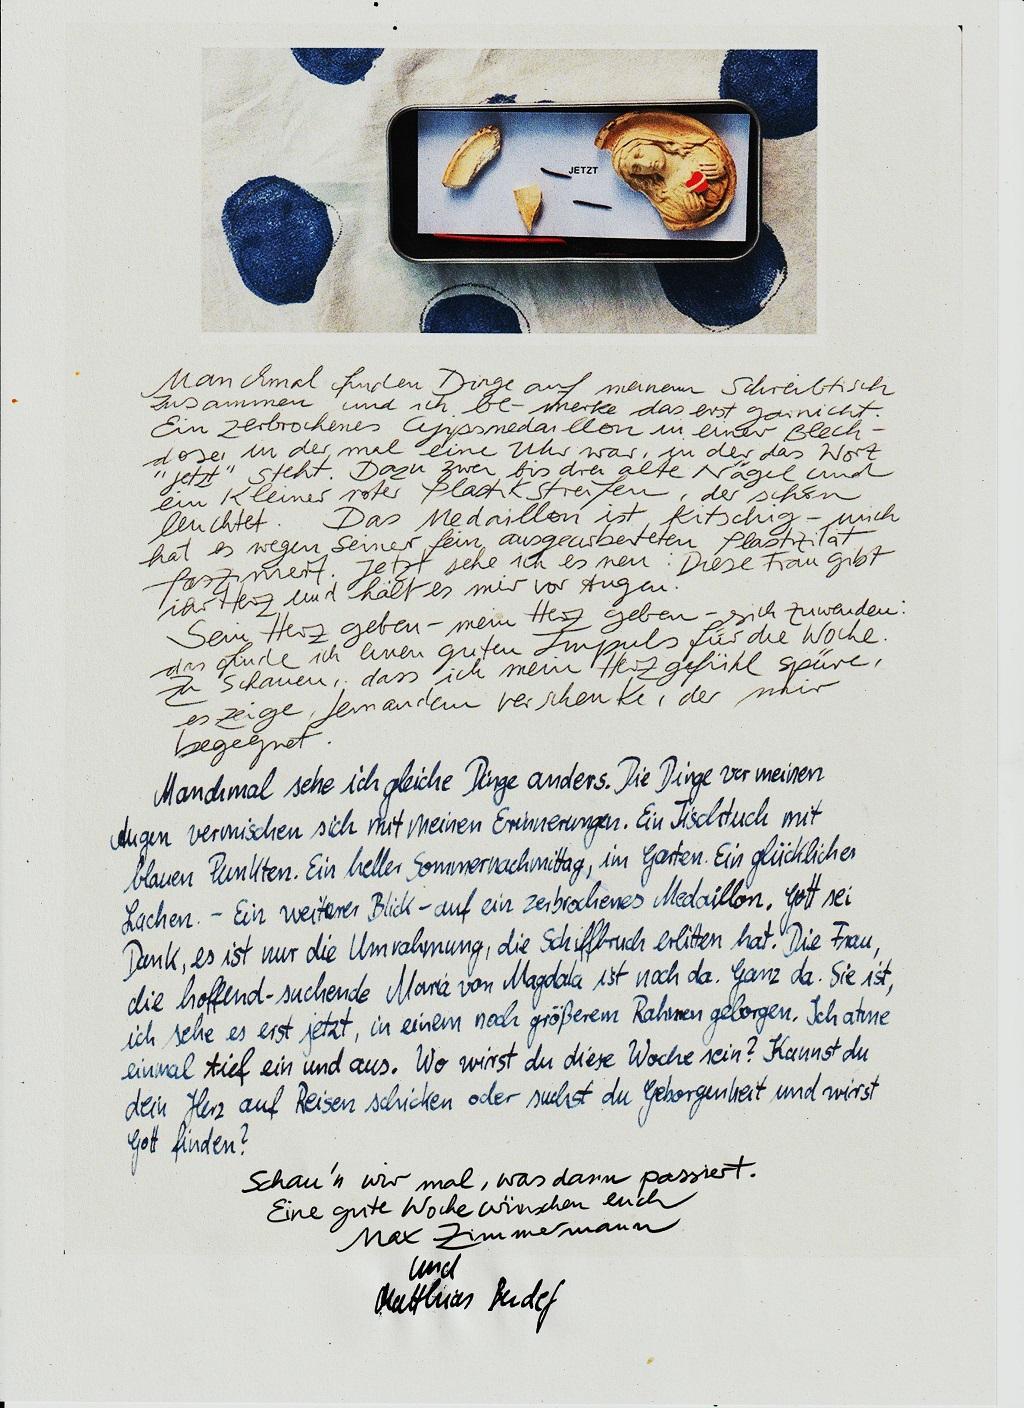 JETZT
Manchmal finden Dinge auf meinem Schreibtisch
zusammen und ich be-merke das erst garnicht.
Ein zerbrochenes Gypsmedaillon in einer Blech-
dose, in der mal eine Uhr war, in der das Wort
"jetzt" steht. Dazu zwei bis drei alte Nägel und
ein kleiner roter Plastikstreifen, der schön
leuchtet. Das Medaillon ist kitschig - mich
hat es wegen seiner fein ausgearbeiteten Plastizität
fasziniert. Jetzt sehe ich es neu: Diese Frau gibt
ihr Herz und hält es mir vor Augen.
Sein Herz geben - mein Herz geben - sich zuwenden:
das finde ich einen guten Impuls für die Woche.
Zu schauen, dass ich mein Herzgefühl spüre,
es zeige, jemandem verschenke, der mir
begegnet.
Manchmal sehe ich gleiche Dinge anders. Die Dinge vor meinen
Augen vermischen sich mit meinen Erinnerungen. Ein Tischtuch mit
blauen Punkten. Ein heller Sommernachmittag, im Garten. Ein glückliches
Lachen. - Ein weiterer Blick - auf ein zerbrochenes Medaillon. Gott sei
Dank, es ist nur die Umrahmung, die Schiffbruch erlitten hat. Die Frau,
die hoffend-suchende Maria von Magdala ist noch da. Ganz da. Sie ist,
ich sehe es erst jetzt, in einem noch größerem Rahmen geborgen. Ich atme
einmal tief ein und aus. Wo wirst du diese Woche sein? Kannst du
dein Herz auf Reisen schicken oder suchst du Geborgenheit und wirst
Gott finden?
Schau'n wir mal, was dann passiert.
Eine gute Woche wünschen euch
Max Zimmermann
und
Matthias